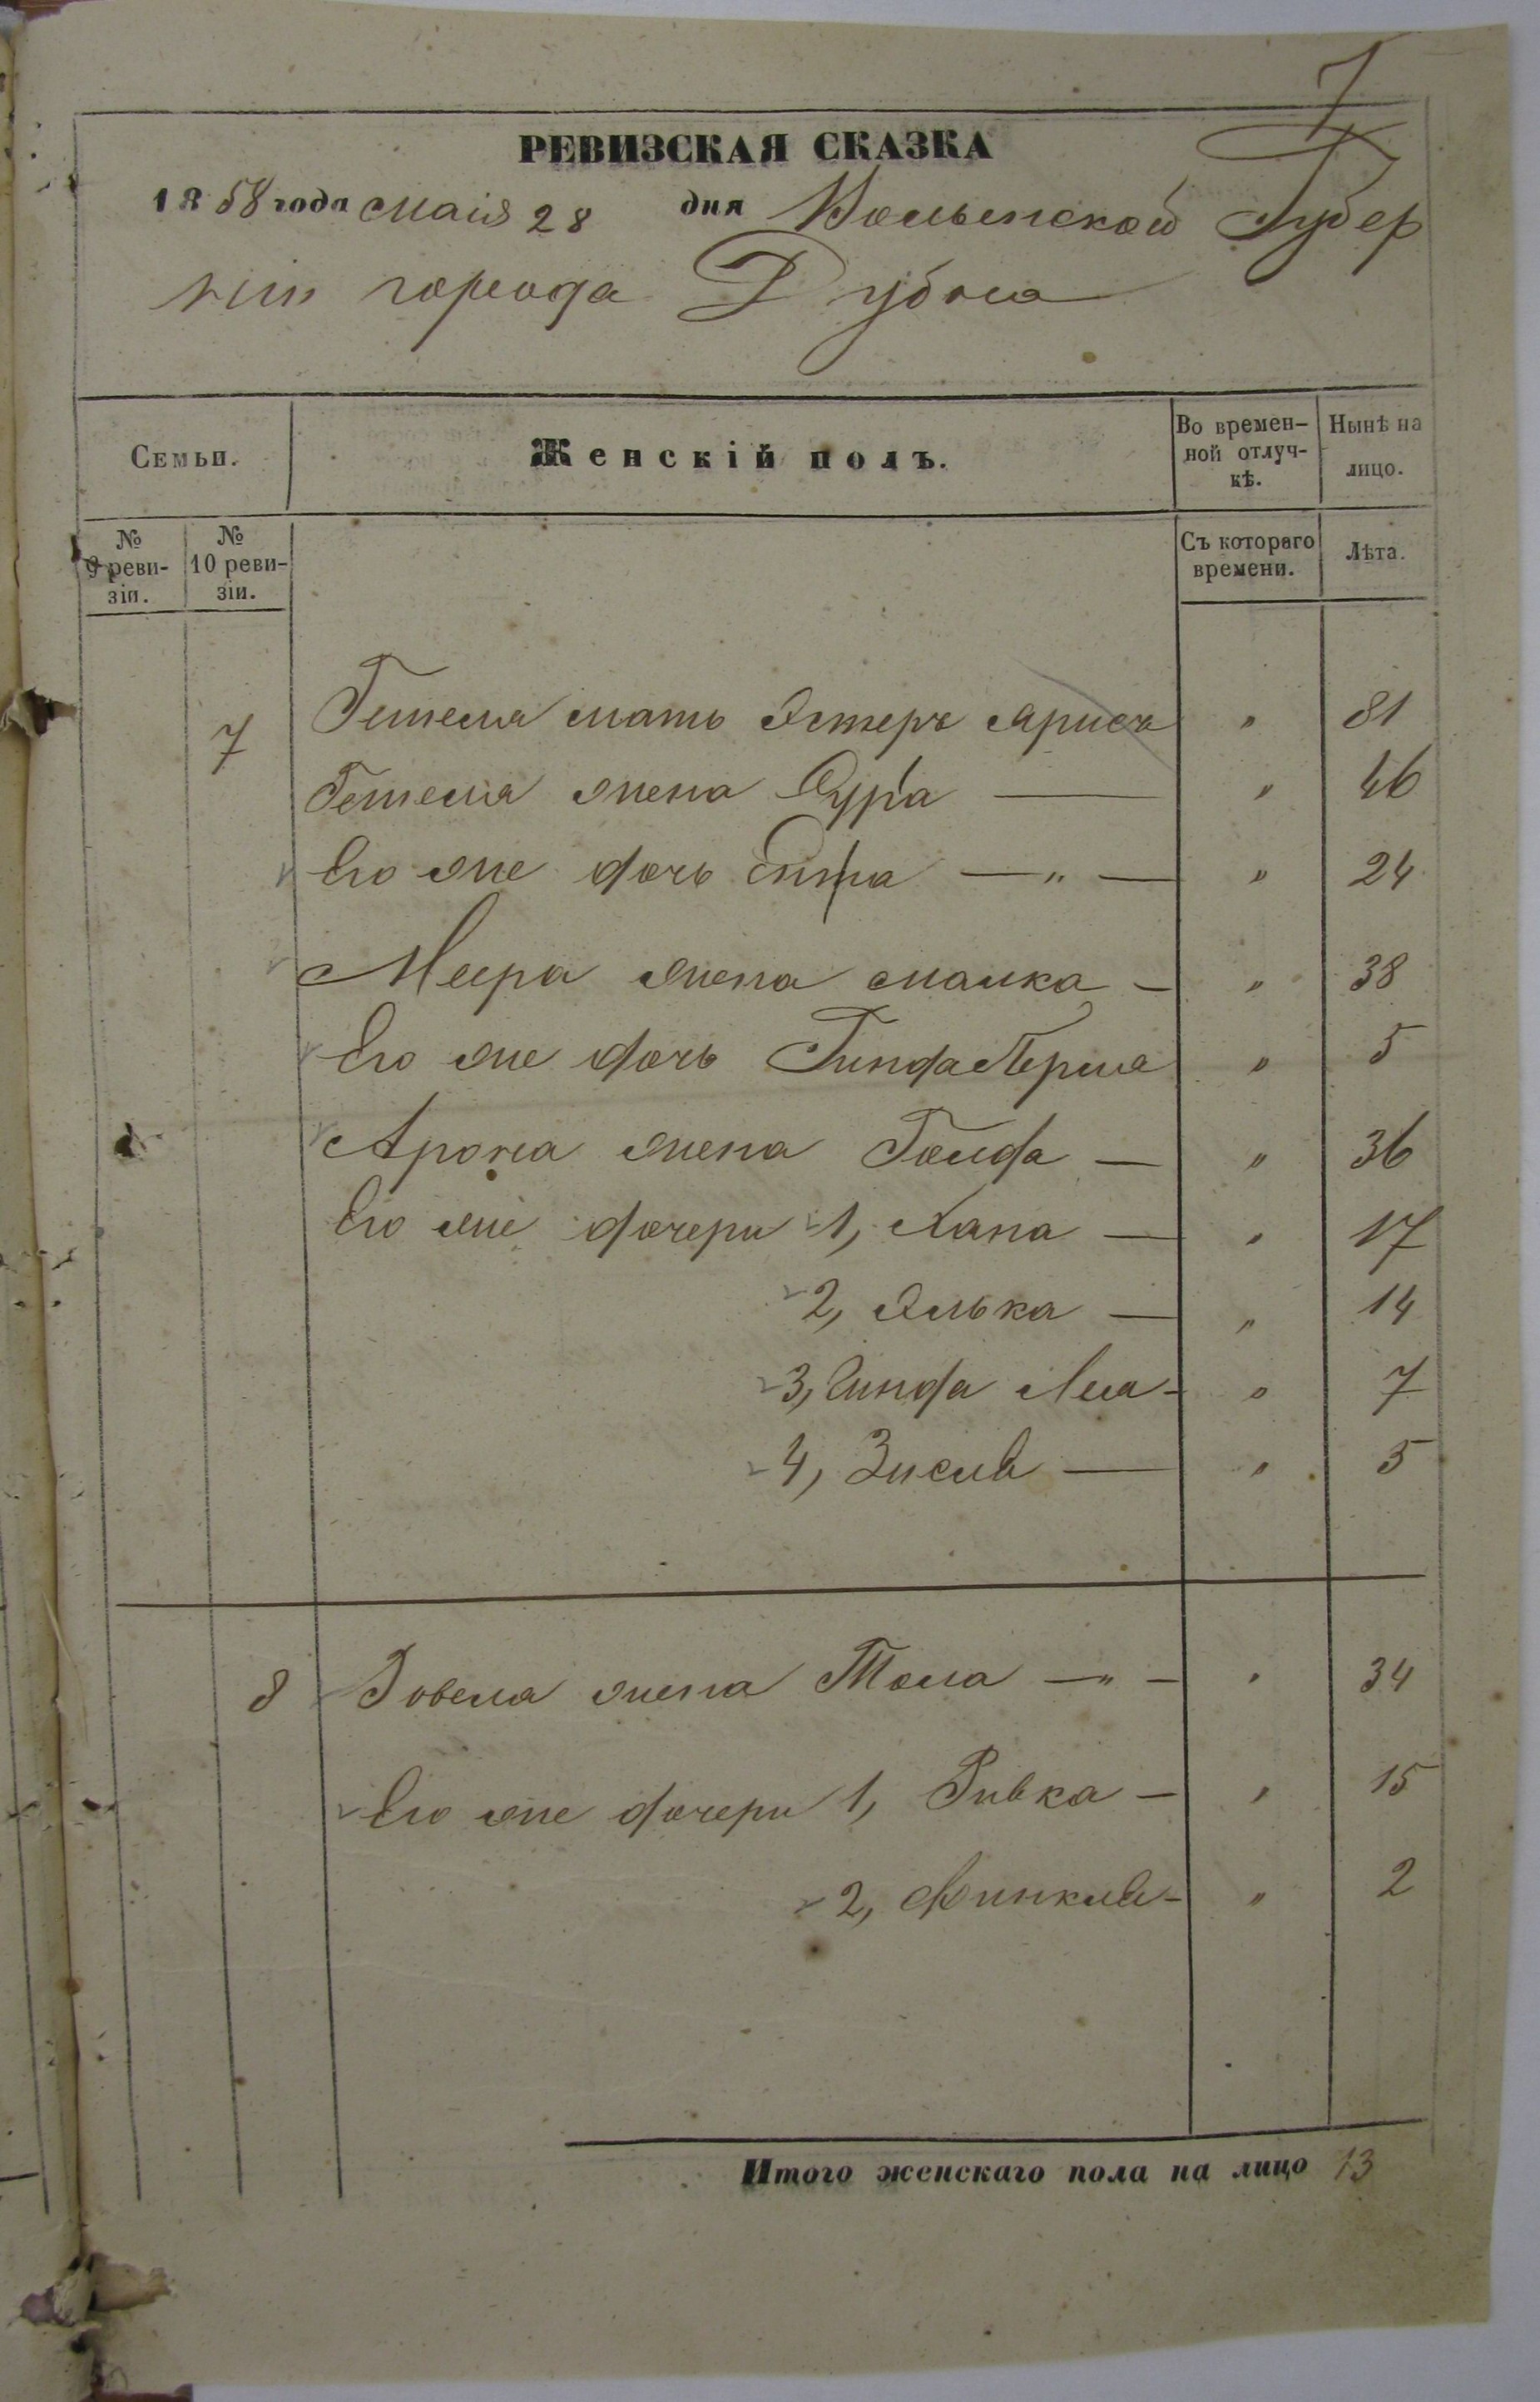 7
РЕВИЗСКАЯ СКАЗКА
1858 года Маія 28 дня Волынской Губер
ніи города Дубна
Семьи.
Женскій полъ.
Во времен-
ной отлуч-
кѣ.
Нынѣ на
лицо.
№
9 реви-
зіи.
№
10 реви-
зіи.
Съ котораго
времени.
Лѣта.
7 Гешеля мать Эстеръ " 81
Гешеля жена Сура — " 46
Его же дочь Ента — " — " 24
Меера жена Малка — " 38
Его же дочь Гинда Перла " 5
Арона жена Голда — " 36
Его же дочери 1, Хана — " 17
2, Элька — " 14
3, Гинда Леа - " 7
4, Зисля — " 5
8 Іовеля жена Тола — " - " 34
Его же дочери 1, Ривка — " 15
2, Финкля - " 2
Итого женскаго пола на лицо 13